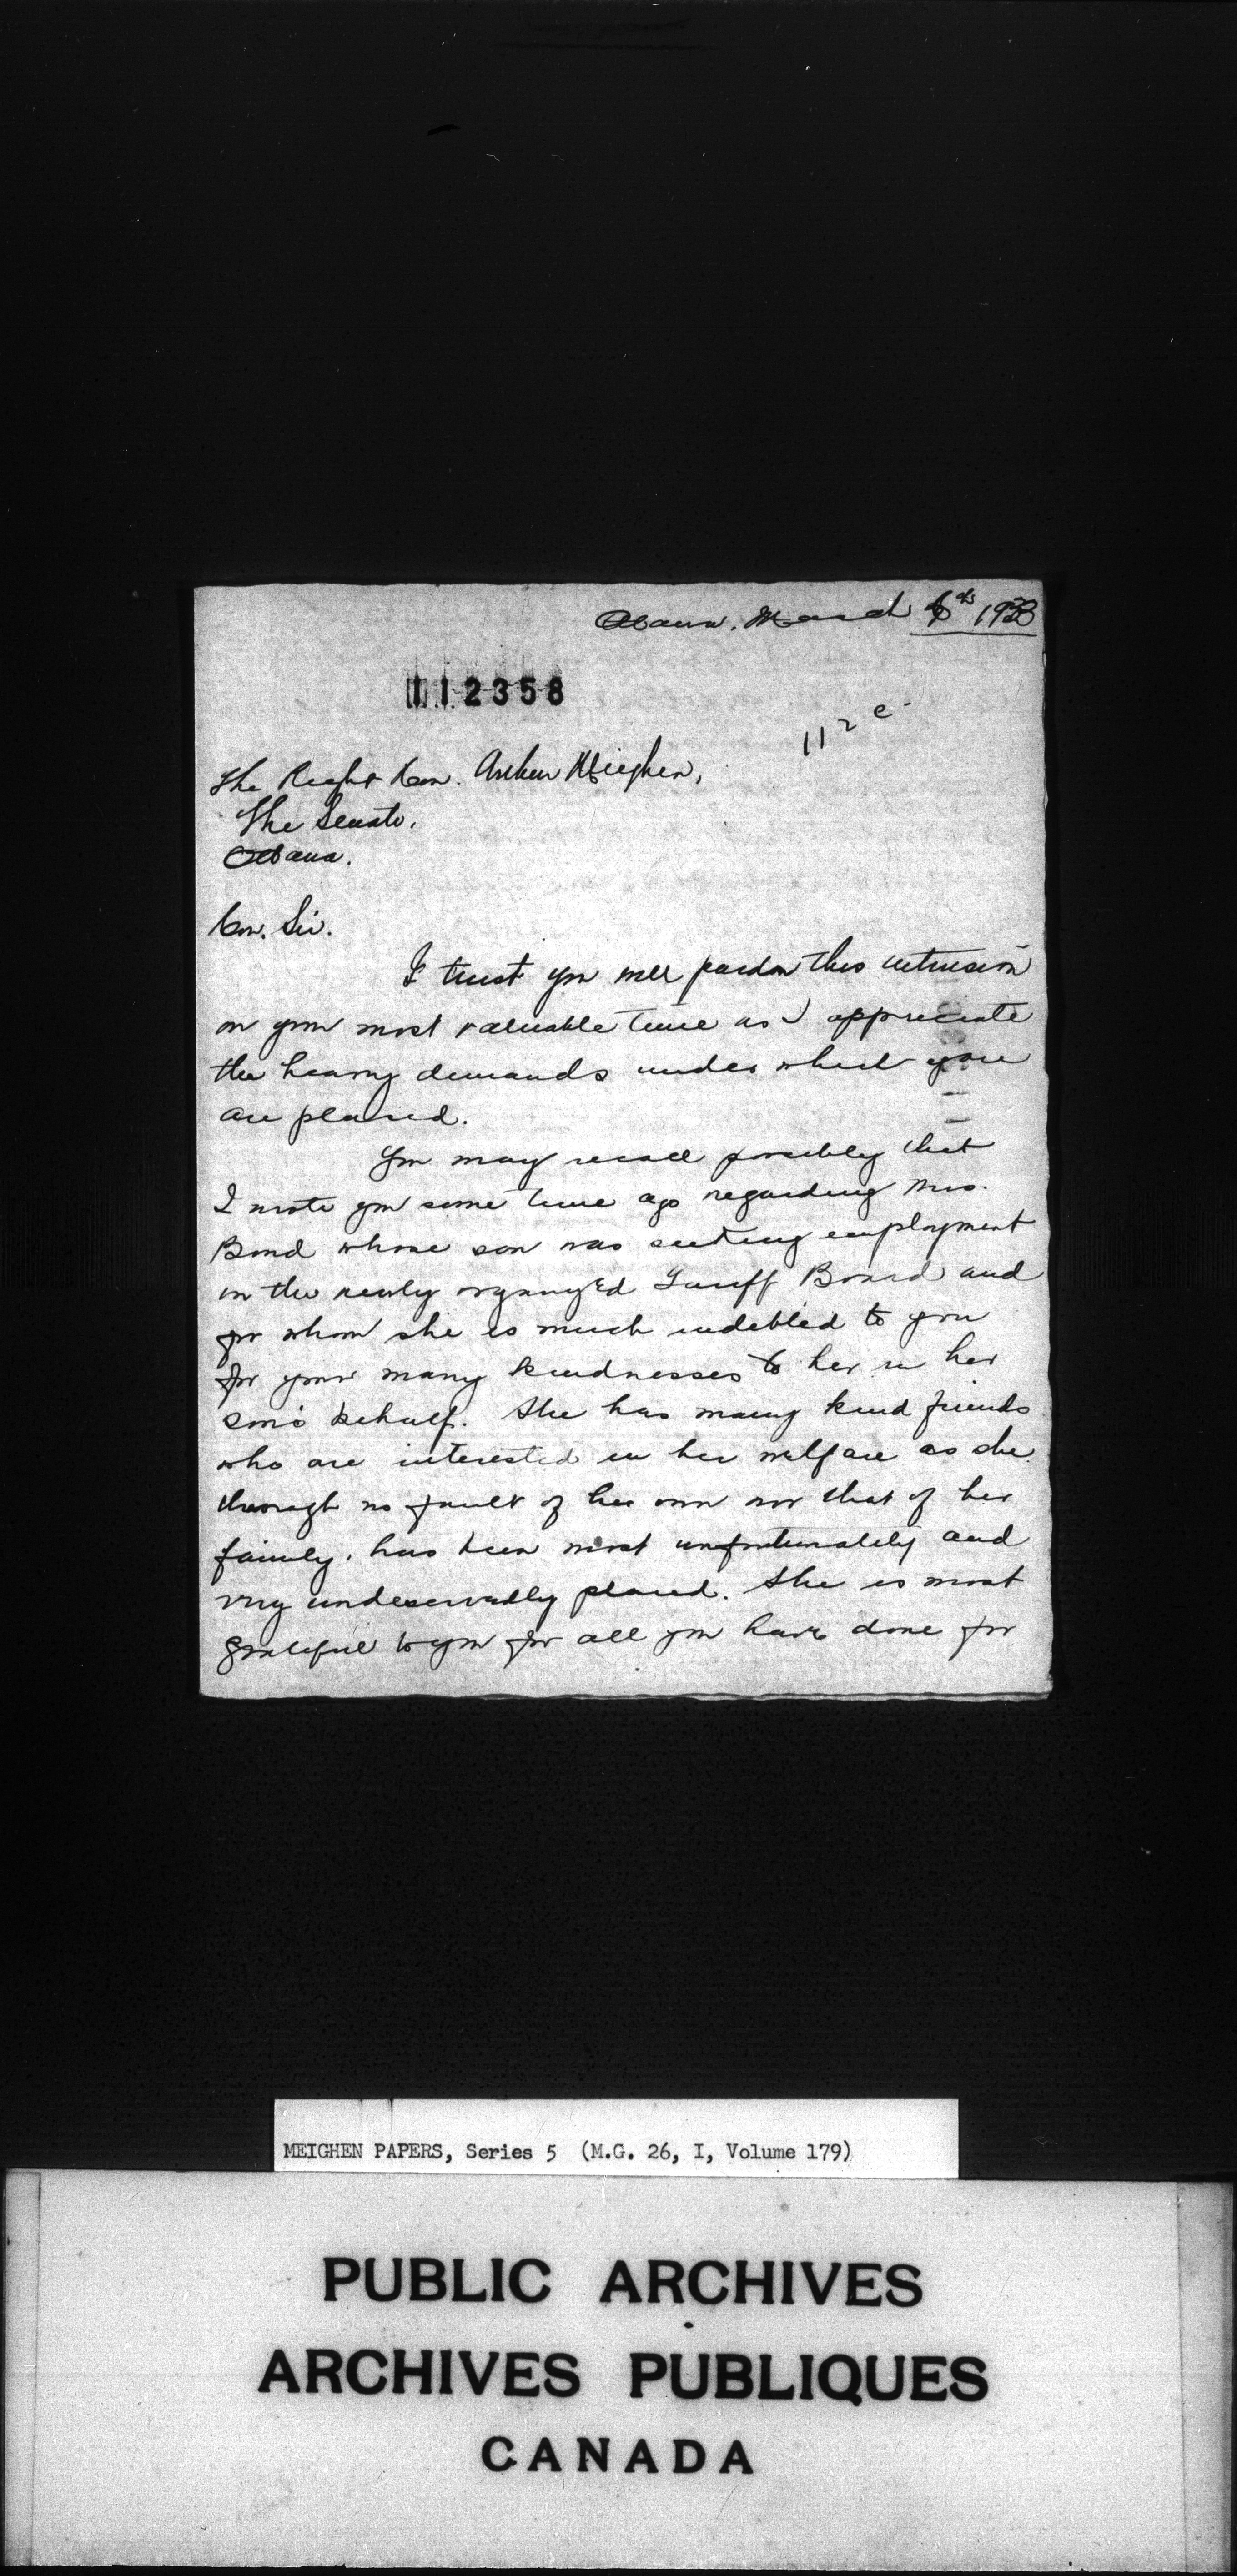 Ottawa. March 6th 1933
112358
112 e-
The Right Hon. Arthur Meighen,
The Senate.
Ottawa.
Hon. Sir.
I trust you will pardon this intrusion
on your most valuable time as I appreciate
the heavy demands under which you
are placed.
You may recall possibly that
I wrote you some time ago regarding Mrs.
Bond whose son was seeking employment
in the newly organized Tariff Board and
for whom she is much indebted to you
for your many kindnesses to her in her
son's behalf. She has many kind friends
who are interested in her welfare as she
through no fault of her own nor that of her
family, has been most unfortunately and
very undeservedly placed. She is most
grateful to you for all you have done for
MEIGHEN PAPERS, Series 5 (M.G. 26, I, Volume 179)
PUBLIC ARCHIVES
ARCHIVES PUBLIQUES
CANADA